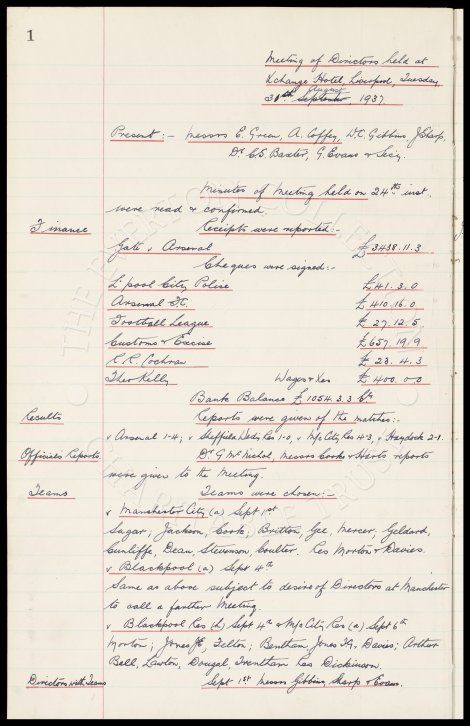 1
Meeting of Directors held at
Xchange Hotel, Liverpool, Tuesday,
31st August 1937
Present:- Messrs E. Green, A. Coffey, W.C. Gibbins J. Sharp,
Dr C.S. Baxter, G. Evans & Secy.
Minutes of Meeting held on 24th inst.
were read & confirmed.
Finance Receipts were reported:-
Gate v Arsenal £3438.11.3
Cheques were signed:-
L'pool City Police £41.3.0
Arsenal F.C. £410.16.0
Football League £27.12.5
Customs & Excise £657.19.9
R.R. Cochran £23.4.3
Theo Kelly Wages & Xes £400.0.0
Bank Balance £1054.3.3
Results Reports were given of the matches:-
v Arsenal 1-4, v Sheffield Weds Res 1-0, v M/c City Res 4-3, v Haydock 2-1.
Officials Reports. Dr G McNichol, Messrs Cooke & Harts reports
were given to the Meeting.
Teams Teams were chosen:-
v Manchester City (a) Sept 1st
Sagar; Jackson, Cook; Britton, Gee, Mercer; Geldard,
Cunliffe, Dean, Stevenson, Coulter. Res Morton & Davies.
v Blackpool (a) Sept 4th
Same as above subject to desire of Directors at Manchester
to call a further Meeting.
v Blackpool Res (h) Sept 4th & M/c City Res (a) Sept 6th
Morton; Jones JE, Felton; Bentham, Jones TG, Davies; Arthur
Bell, Lawton, Dougal Trentham Res Dickinson.
Directors with Teams Sept 1st Messrs Gibbins, Sharp & Evans.